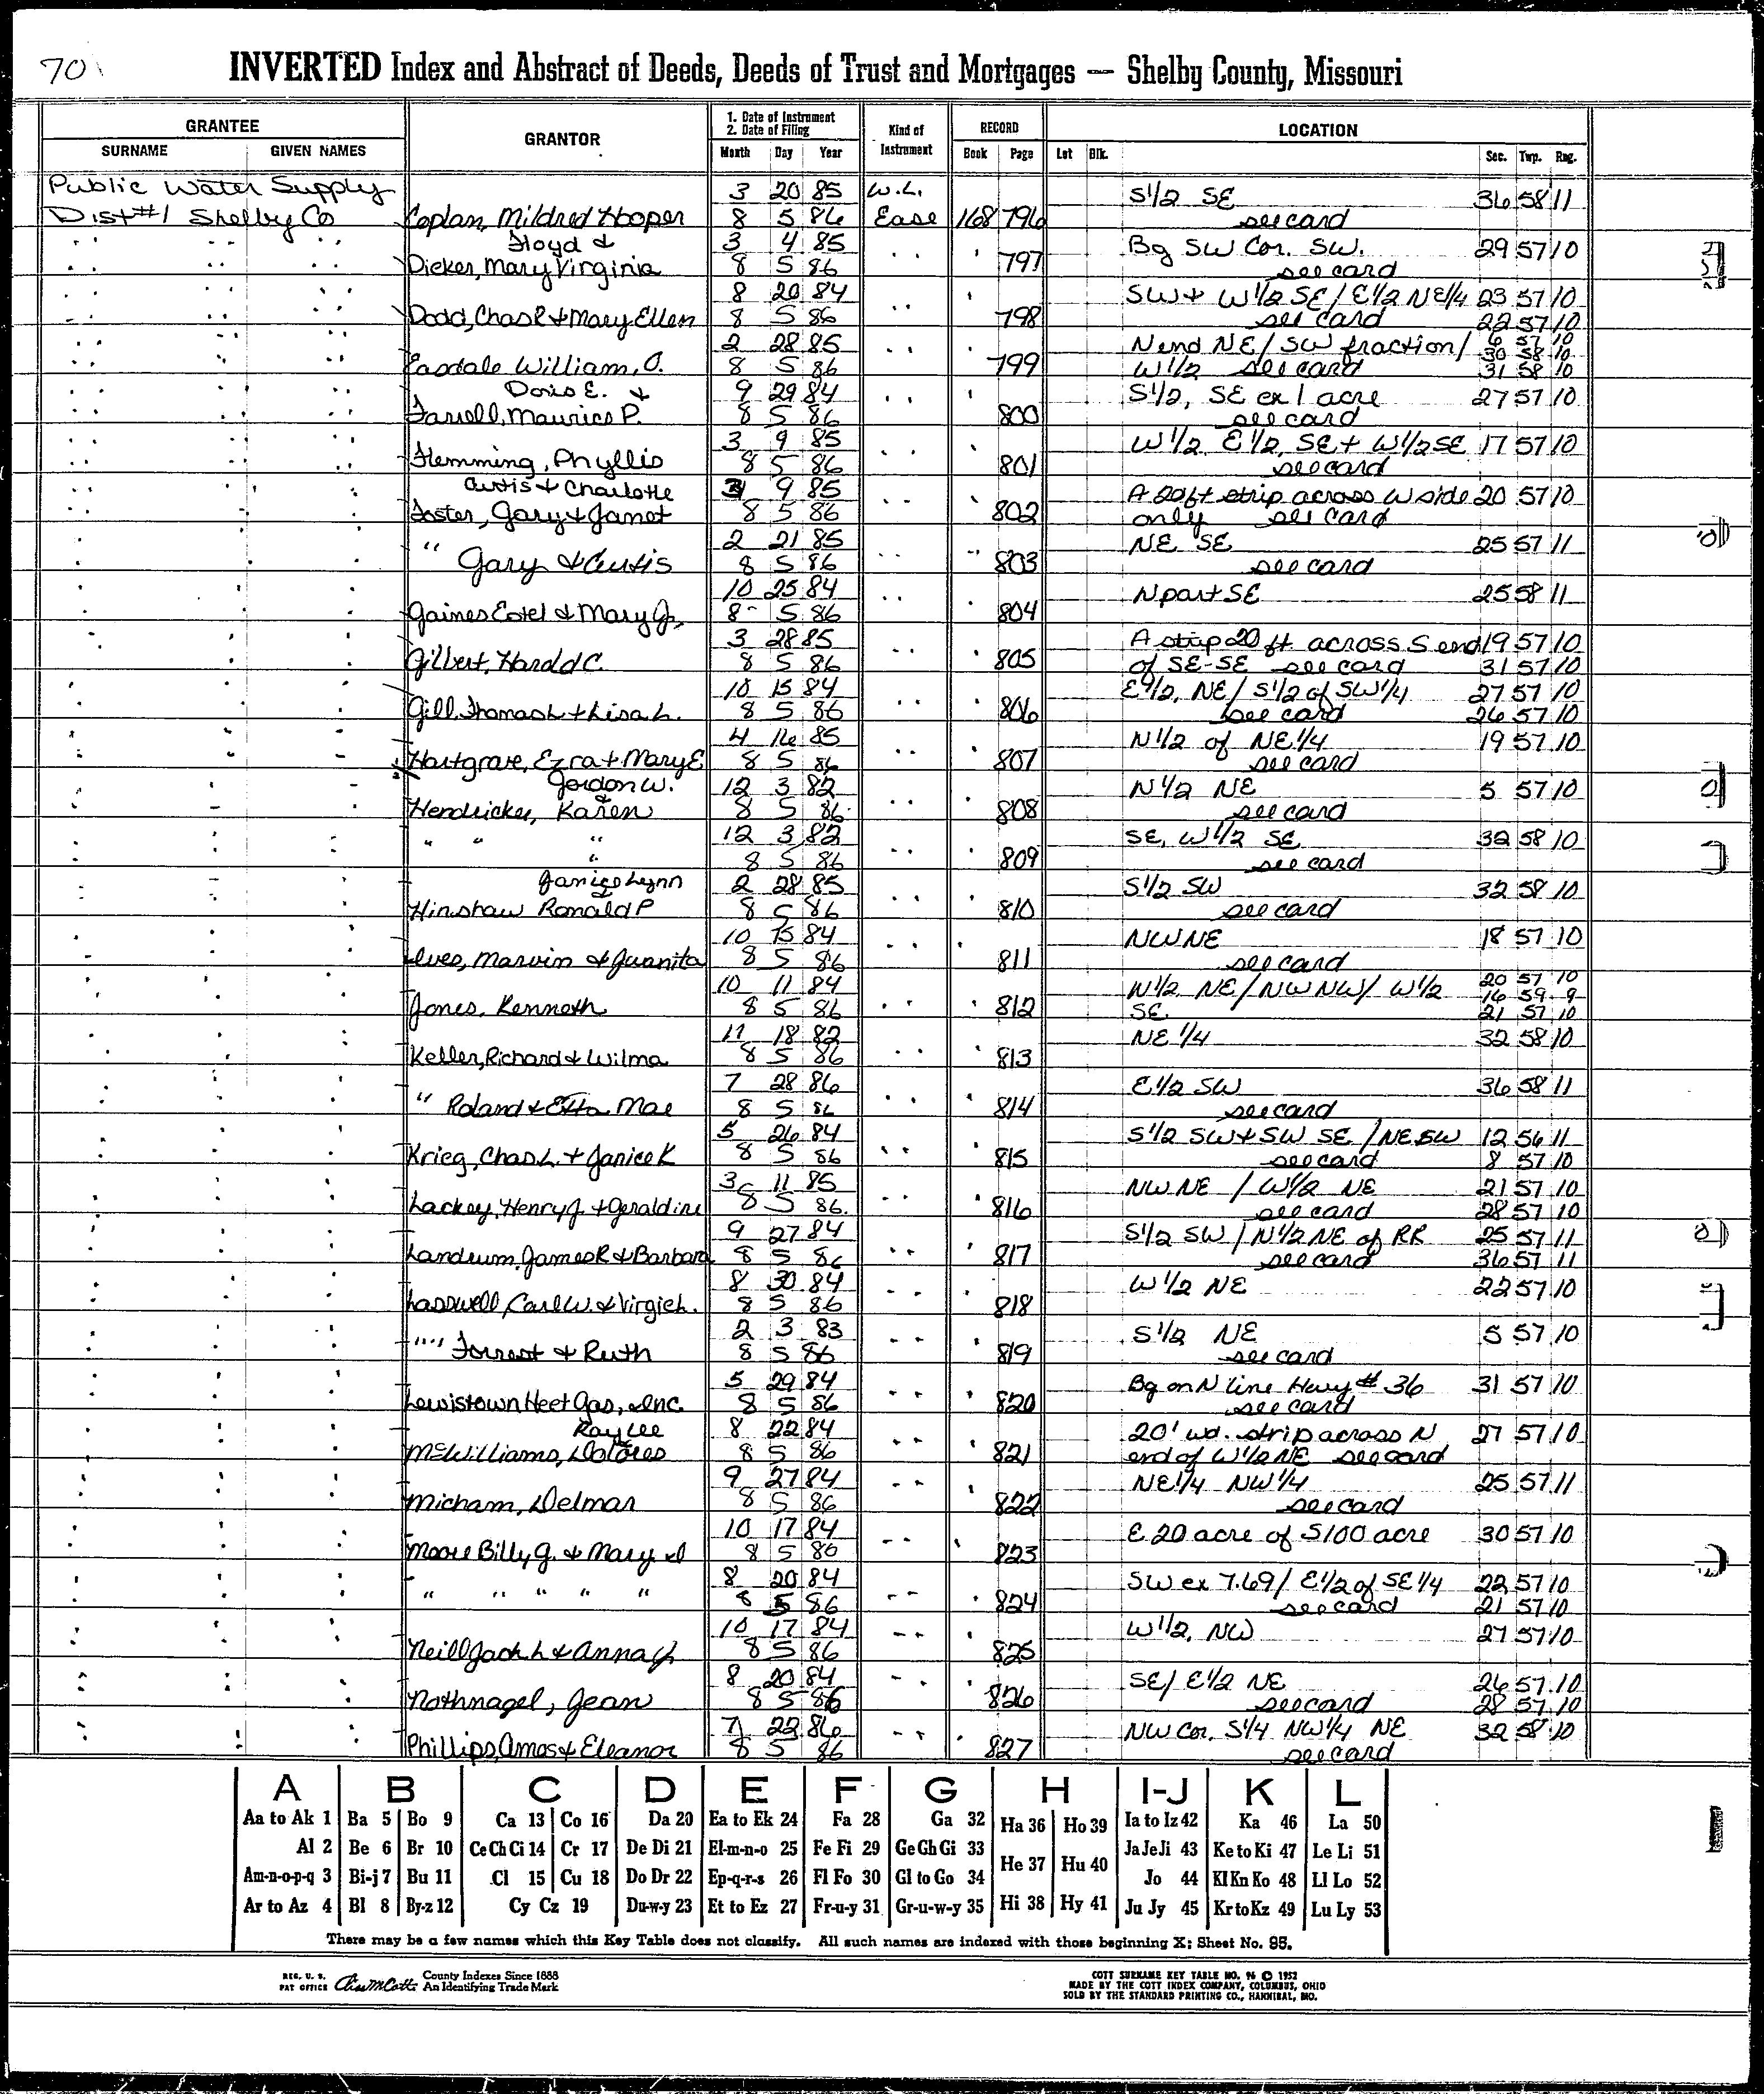 701
INVERTED Index and Abstract of Deeds, Deeds of Trust and Mortgages — Shelby County, Missouri
GRANTEE GRANTOR 1. Date of Instrument 2. Date of Filing Kind of Instrument RECORD LOCATION
SURNAME GIVEN NAMES Month Day Year Book Page Lot Blk. Sec. Twp. Rng.
Public Water Supply 3 20 85 W.L. S1/2 SE 36 58 11
Dist #1 Shelby Co Coplan, Mildred Hooper 8 5 86 Ease 168 796 see card
Floyd & 3 4 85 Bg SW Cor. SW. 29 57 10
Dicker, Mary Virginia 8 5 86 797 see card
8 20 84 SW+ W1/2 SE/E1/2 NE1/4 23 57 10
Dodd, Chas R & Mary Ellen 8 5 86 798 see card 22 57 10
2 28 85 N end NE/SW fraction/ 6 57 10
30 58 10
Easdale William, O. 8 5 86 799 W1/2 see card 31 58 10
Doris E. & 9 29 84 S1/2, SE ex 1 acre 27 57 10
Farrell, Maurice P. 8 5 86 800 see card
3 9 85 W1/2, E1/2, SE+ W1/2 SE 17 57 10
Flemming, Phyllis 8 5 86 801 see card
Curtis & Charlotte 3 9 85 A 20 ft strip across W side 20 57 10
Foster, Gary & Janet 8 5 86 802 only see card
2 21 85 NE SE 25 57 11
" Gary & Curtis 8 5 86 803 see card
10 25 84 N part SE 25 58 11
Gaines Estel & Mary J., 8 5 86 804
3 28 85 A strip 20 ft across S end 19 57 10
Gilbert, Harold C. 8 5 86 805 of SE-SE see card 31 57 10
10 15 84 E1/2, NE/S1/2 of SW1/4 27 57 10
Gill, Thomas L & Lisa L. 8 5 86 806 see card 26 57 10
4 16 85 N1/2 of NE1/4 19 57 10
Hartgrave, Ezra & Mary E 8 5 86 807 see card
Gordon W. & 12 3 82 N1/2 NE 5 57 10
Hendricker, Karen 8 5 86 808 see card
" " " 12 3 82 SE, W1/2 SE 32 58 10
" 8 5 86 809 see card
Janice Lynn & 2 28 85 S1/2 SW 32 58 10
Hinshaw Ronald P 8 5 86 810 see card
10 15 84 NW NE 18 57 10
Ives, Marvin & Juanita 8 5 86 811 see card
10 11 84 W1/2 NE/NW NW/ W1/2 20 57 10
16 59 9
Jones, Kenneth 8 5 86 812 SE 21 57 10
11 18 82 NE 1/4 32 58 10
Keller, Richard & Wilma 8 5 86 813
7 28 86 E1/2 SW 36 58 11
" Roland & Etta Mae 8 5 86 814 see card
5 26 84 S1/2 SW+SW SE/NE SW 12 56 11
Krieg, Chas L. & Janice K 8 5 86 815 see card 8 57 10
3 11 85 NW NE / W1/2 NE 21 57 10
Lackey, Henry J. & Geraldine 8 5 86. 816 see card 28 57 10
9 27 84 S1/2 SW/N1/2 NE of RR 25 57 11
Landrum, James R & Barbara 8 5 86 817 see card 36 57 11
8 30 84 W1/2 NE 22 57 10
Lasswell, Carl W. & Virgie L. 8 5 86 818
2 3 83 S1/2 NE 5 57 10
"" Forrest & Ruth 8 5 86 819 see card
5 29 84 Bg on N line Hwy # 36 31 57 10
Lewistown Heet Gas, Inc. 8 5 86 820 see card
Ray Lee & 8 22 84 20' wd. strip across N 27 57 10
McWilliams, Dolores 8 5 86 821 end of W1/2 NE see card
9 27 84 NE1/4 NW1/4 25 57 11
Micham, Delmar 8 5 86 822 see card
10 17 84 E 20 acre of S100 acre 30 57 10
Moore Billy G. & Mary 8 5 86 823
8 20 84 SW ex 7.69/ E1/2 of SE1/4 22 57 10
" " " " " 8 5 86 824 see card 21 57 10
10 17 84 W1/2, NW 27 57 10
Neill Jack L & Anna 8 5 86 825
8 20 84 SE/ E1/2 NE 26 57 10
Nothnagel, Jean 8 5 86 826 see card 28 57 10
7 22 86 NW Cor. S1/4 NW1/4 NE 32 58 10
Phillips, Amos & Eleanor 8 5 86 827 see card
A B C D E F G H I-J K L
Aa to Ak 1 Ba 5 Bo 9 Ca 13 Co 16 Da 20 Ea to Ek 24 Fa 28 Ga 32 Ha 36 Ho 39 Ia to Iz 42 Ka 46 La 50
Al 2 Be 6 Br 10 Ce Ch Ci 14 Cr 17 De Di 21 El-m-n-o 25 Fe Fi 29 Ge Gh Gi 33 He 37 Hu 40 Ja Je Ji 43 Ke to Ki 47 Le Li 51
Am-n-o-p-q 3 Bi-j 7 Bu 11 Cl 15 Cu 18 Do Dr 22 Ep-q-r-s 26 Fl Fo 30 Gl to Go 34 Hi 38 Hy 41 Jo 44 Kl Kn Ko 48 Ll Lo 52
Ar to Az 4 Bl 8 By-z 12 Cy Cz 19 Du-w-y 23 Et to Ez 27 Fr-u-y 31 Gr-u-w-y 35 Ju Jy 45 Kr to Kz 49 Lu Ly 53
There may be a few names which this Key Table does not classify. All such names are indexed with those beginning X; Sheet No. 95.
REG. U. S. PAT OFFICE County Indexes Since 1888 An Identifying Trade Mark
COTT SURNAME KEY TABLE NO. 96 © 1952
MADE BY THE COTT INDEX COMPANY, COLUMBUS, OHIO
SOLD BY THE STANDARD PRINTING CO., HANNIBAL, MO.